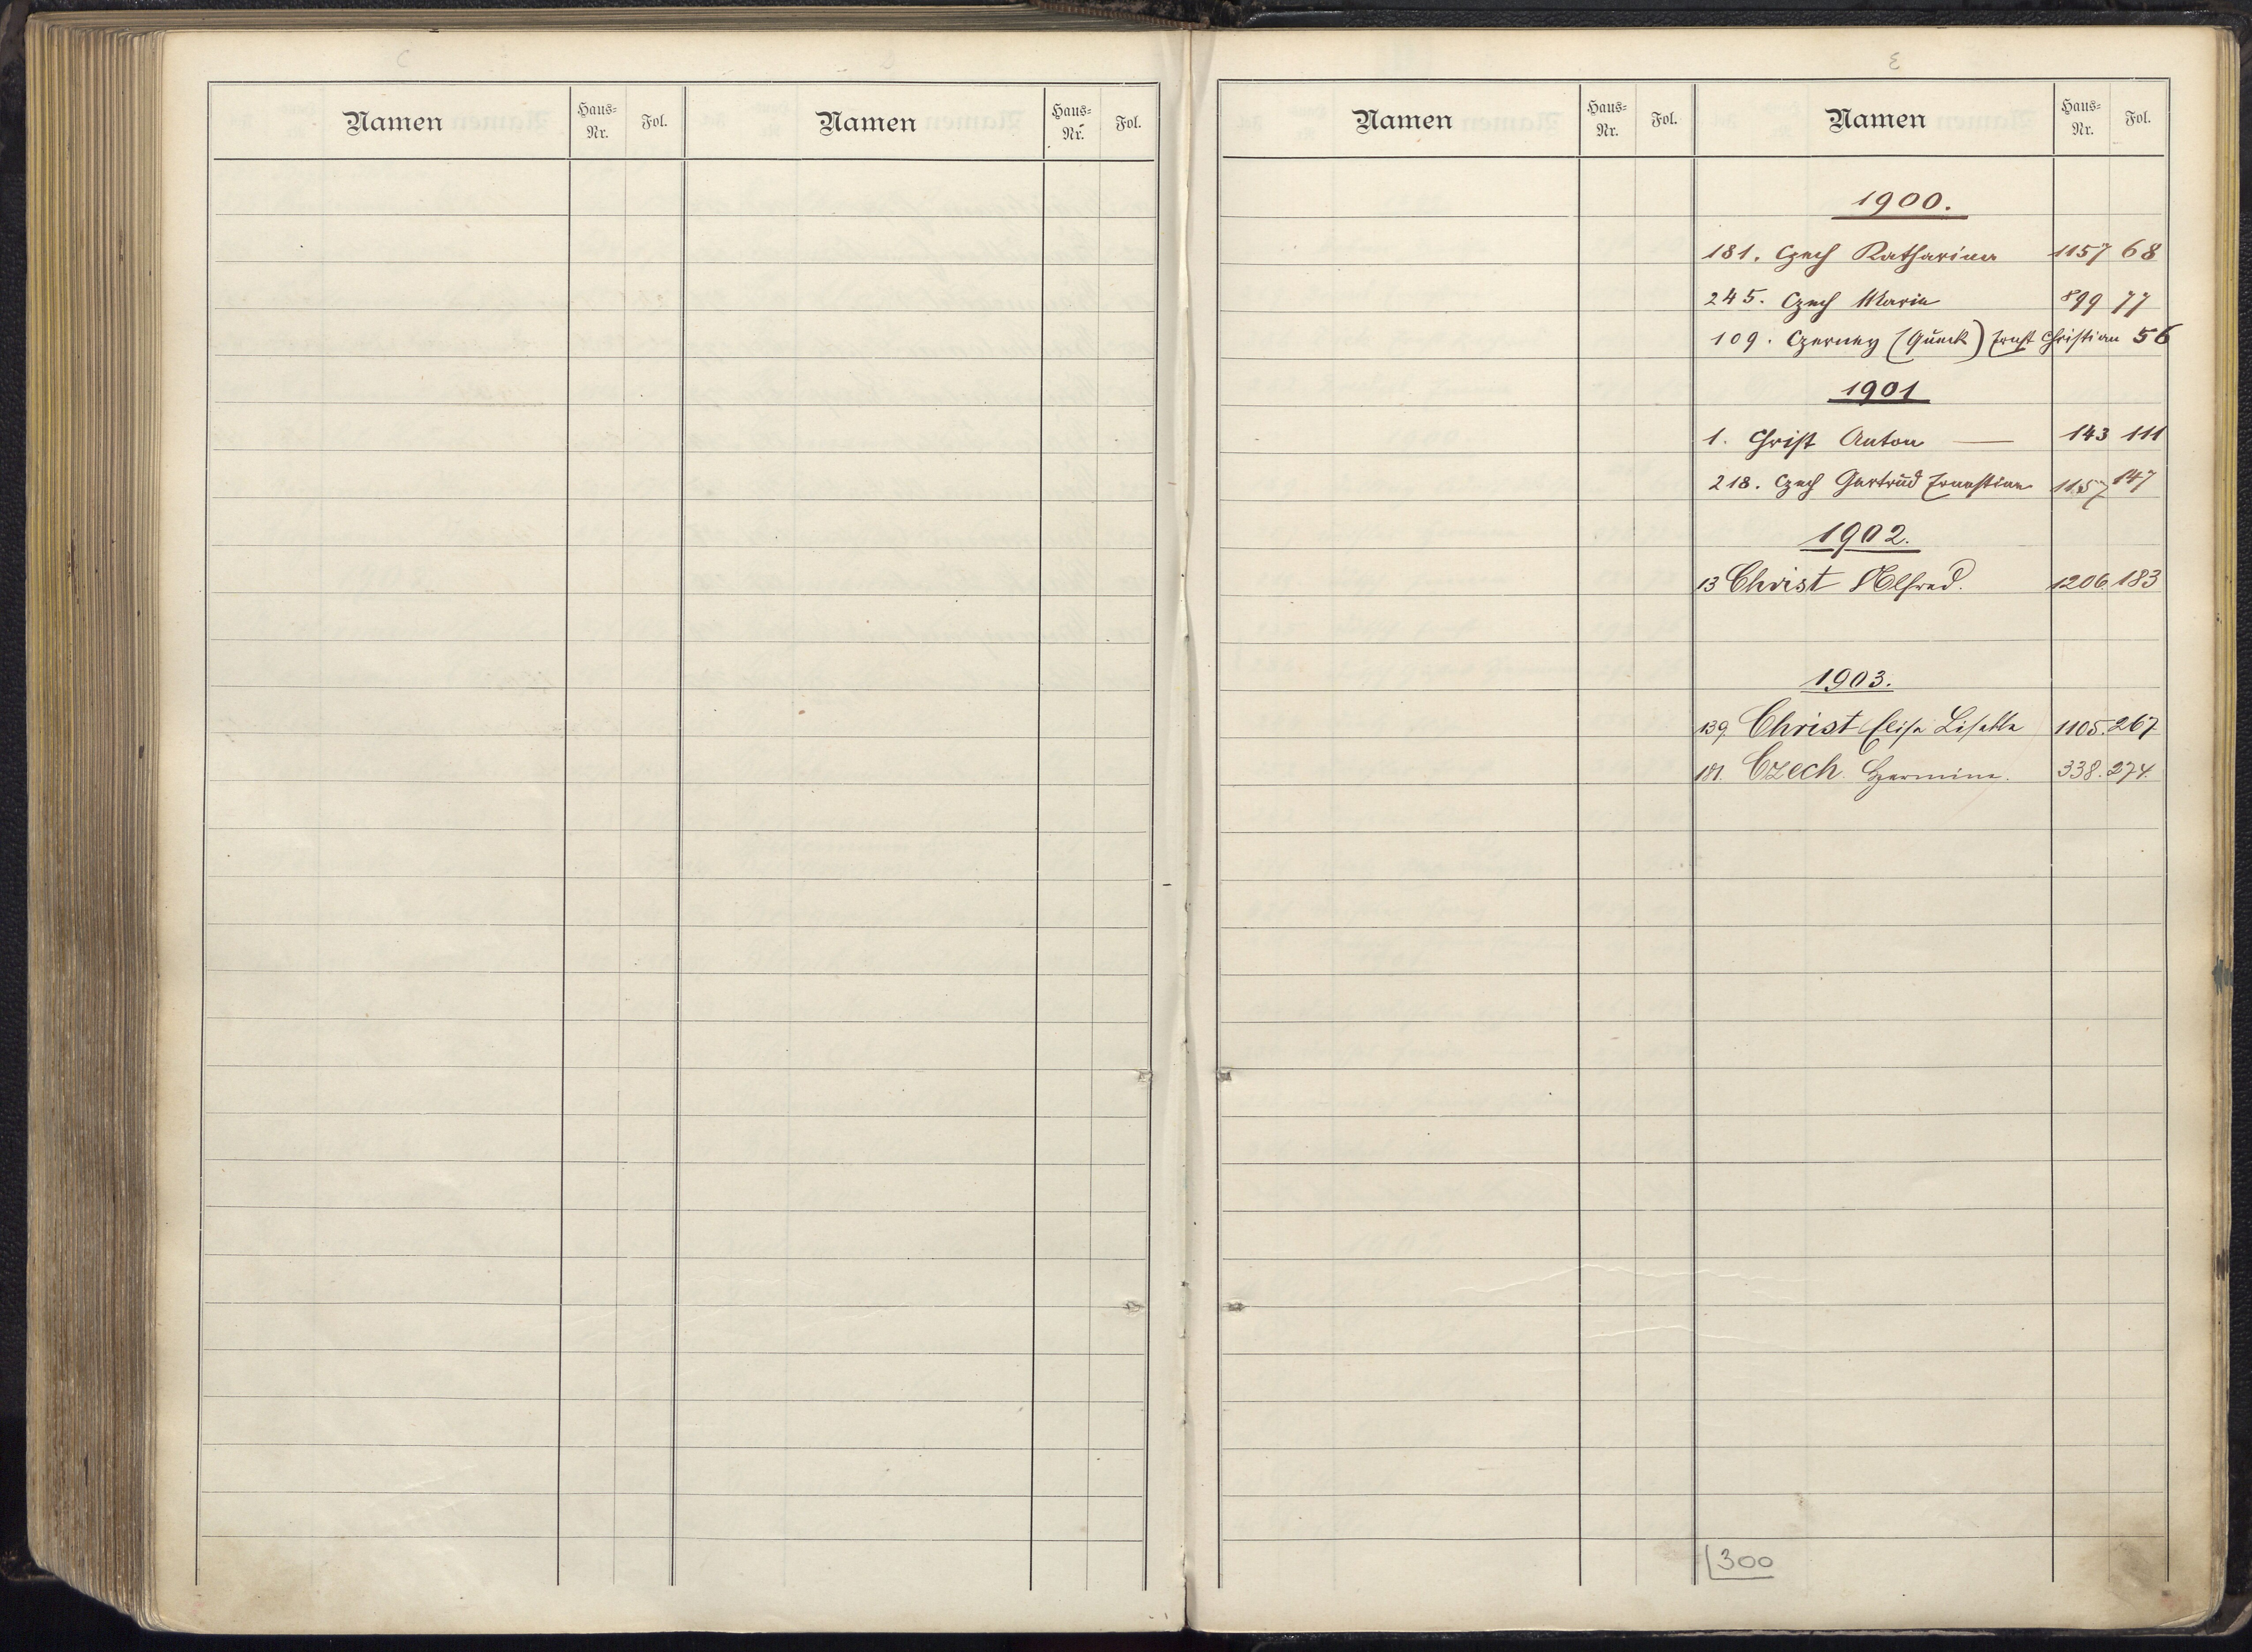 C
Namen Haus-Nr. Fol. Namen Haus-Nr. Fol.
Namen Haus-Nr. Fol. Namen Haus-Nr. Fol.
1900.
181. Czech Katharina 1157 68
245. Czech Marie 899 77
109. Czerney (Queck) Ernst Christian 56
1901
1. Christ Anton — 143 111
218. Czech Gertrud Ernestine 1157 147
1902.
13 Christ Alfred. 1206. 183
1903.
139. Christ Elisa Lisetta 1105. 267
181. Czech Hermine. 338. 274.
300